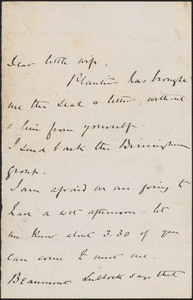 Dear little wife,
has brought
me the Seal & letter without
a line from yourself.
I send back the Birmingham
I am afraid we are going to
have a wet afternoon, let
me know about 3.30 if you
can come to meet me.
Beaumont Lubbock says that